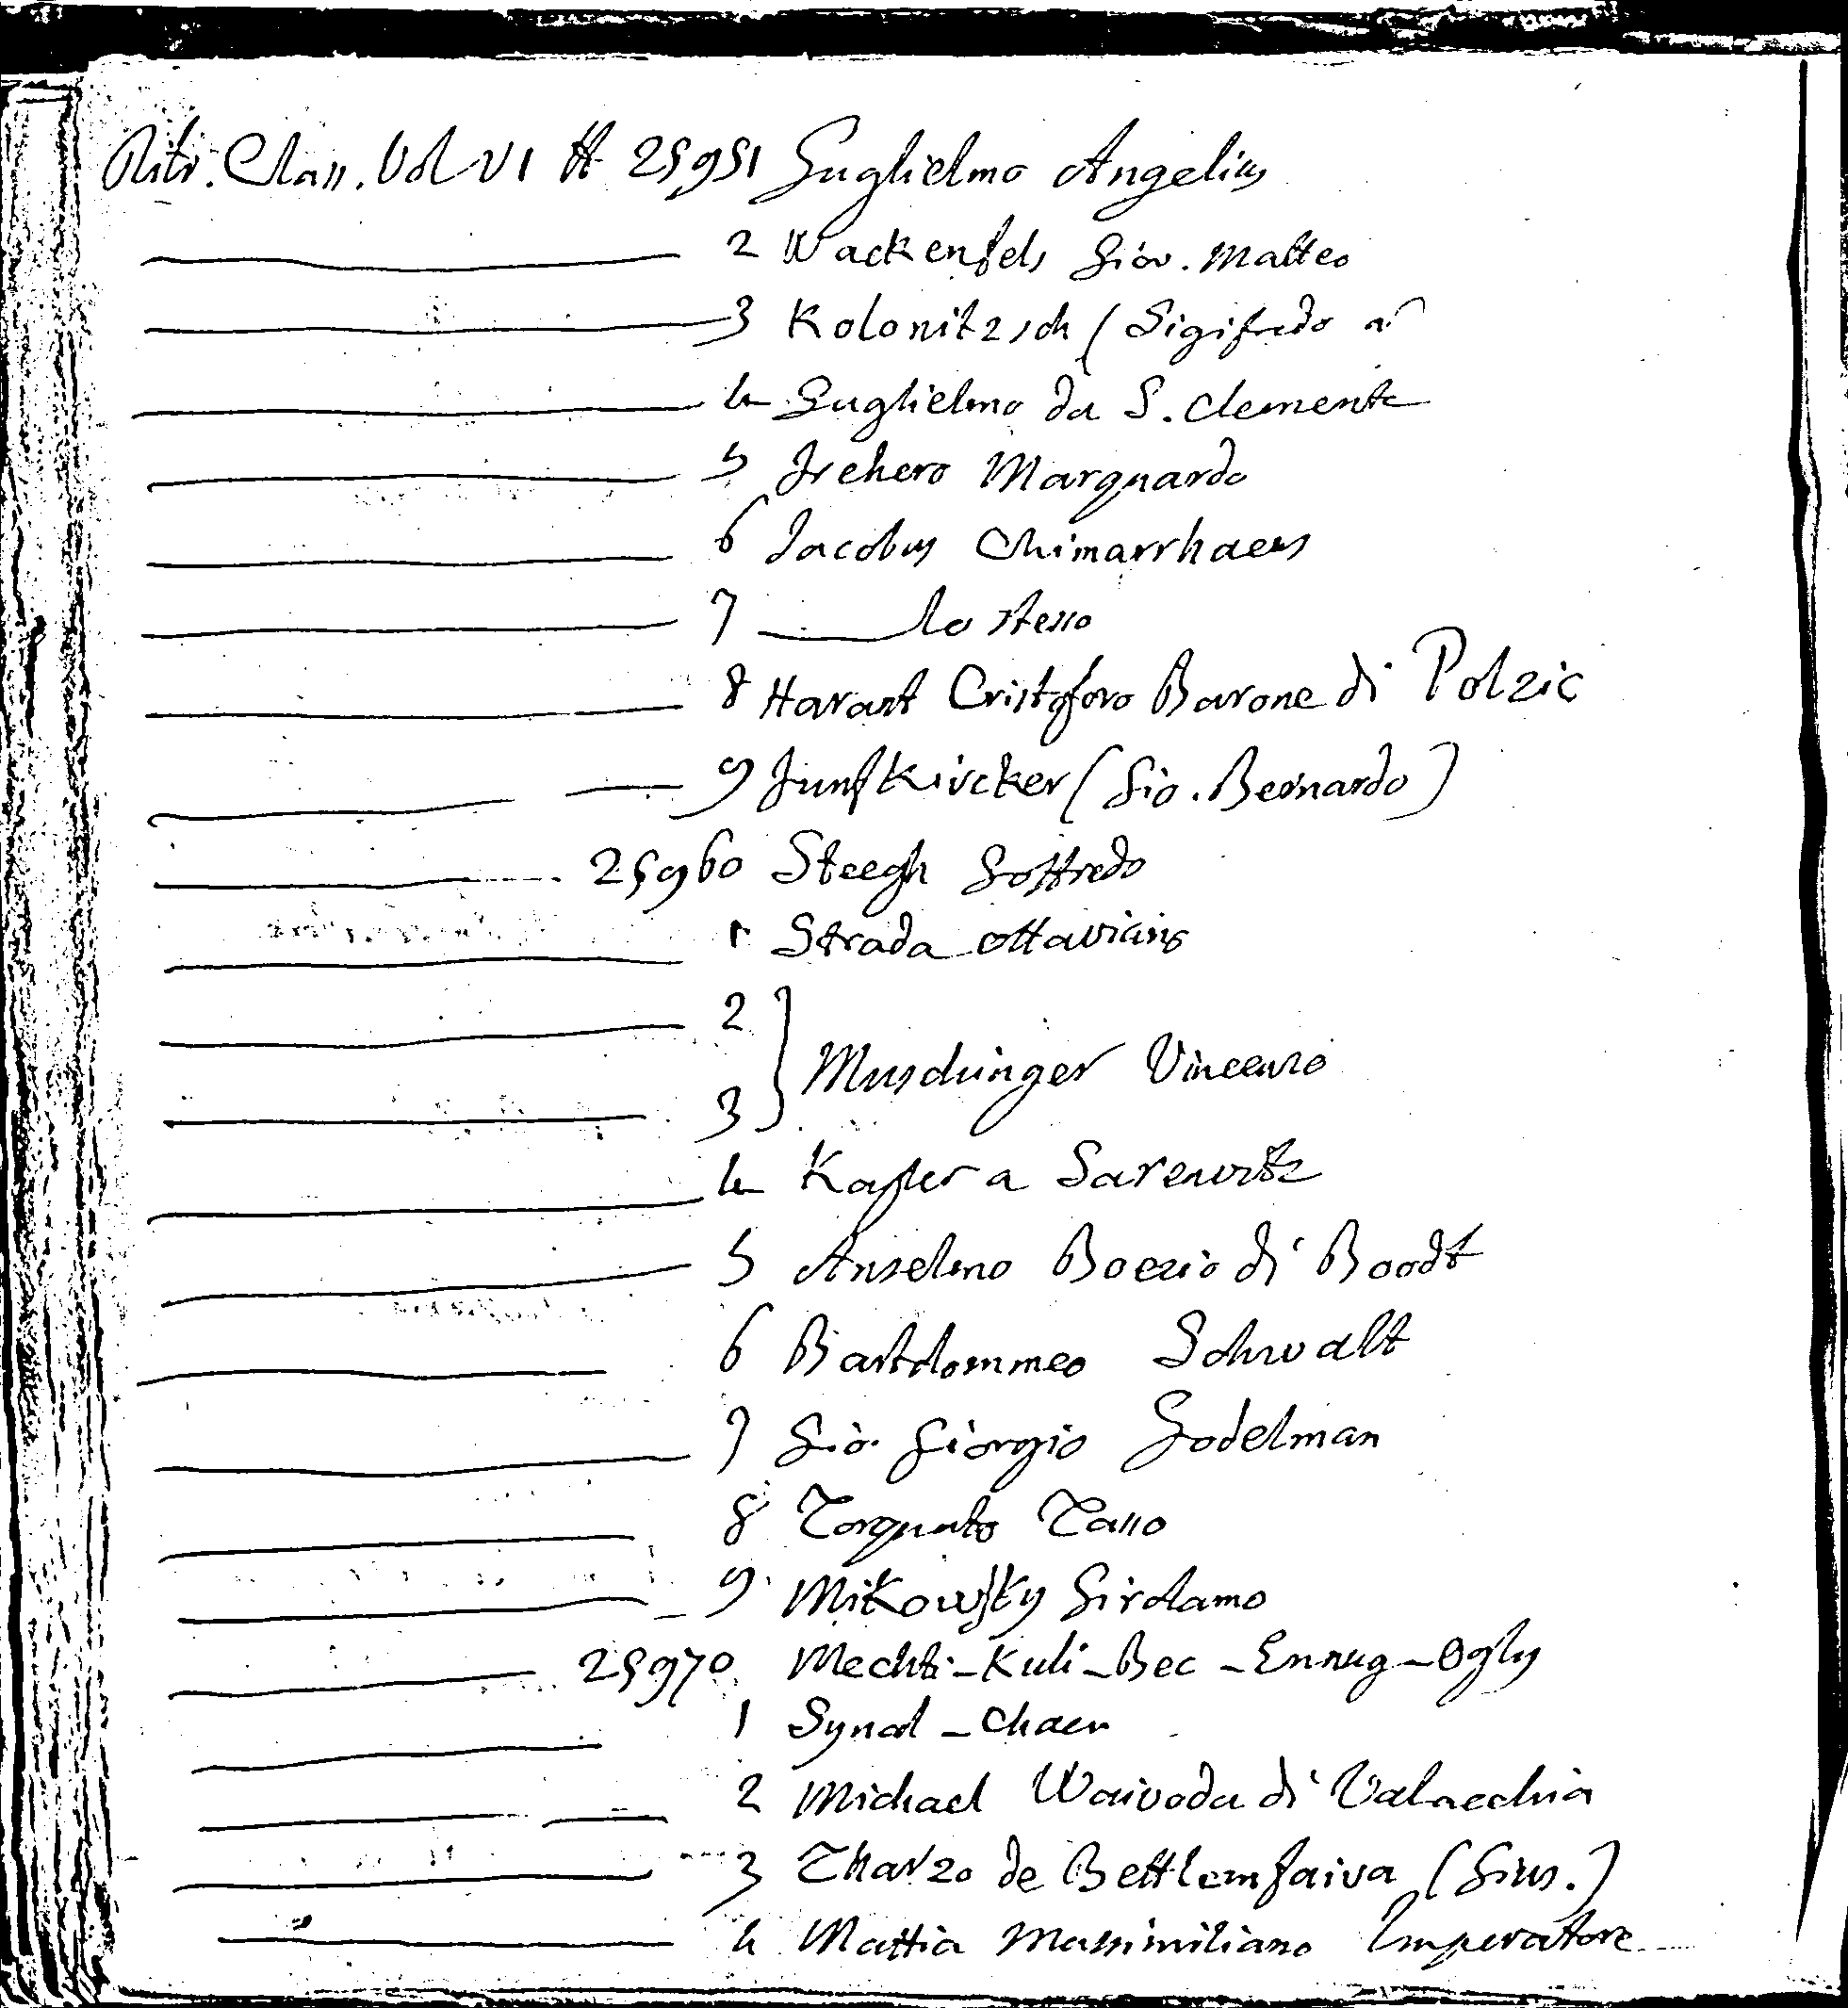 Ritr. Class. Vol VI # 25951 Guglielmo Angelius
2 Wackenfels Giov. Matteo
3 Kolonitzsch (Sigifredo a
4 Guglielmo da S. Clemente
5 Frehero Marquardo
6 Jacobus Chimarrhaeus
7 lo stesso
8 Harant Cristoforo Barone di Polzic
9 Funfkircker (Gio. Bernardo)
25960 Steegh Goffredo
1 Strada Ottaviano
2
Muschinger Vincenzo
3
4 Kapler a
5 Anselmo Boezio di Boodt
6 Bartolommeo Schwalt
7 Gio. Giorgio Godelman
8 Torquato Tasso
9 Mikowsky Girolamo
25970 Mechti-Kuli-Bec-Ennug-Ogly
1 Synal-Chaen
2 Michael Waivoda di Valacchia
3 de Bettlemfaiva
4 Mattia Massimiliano Imperatore